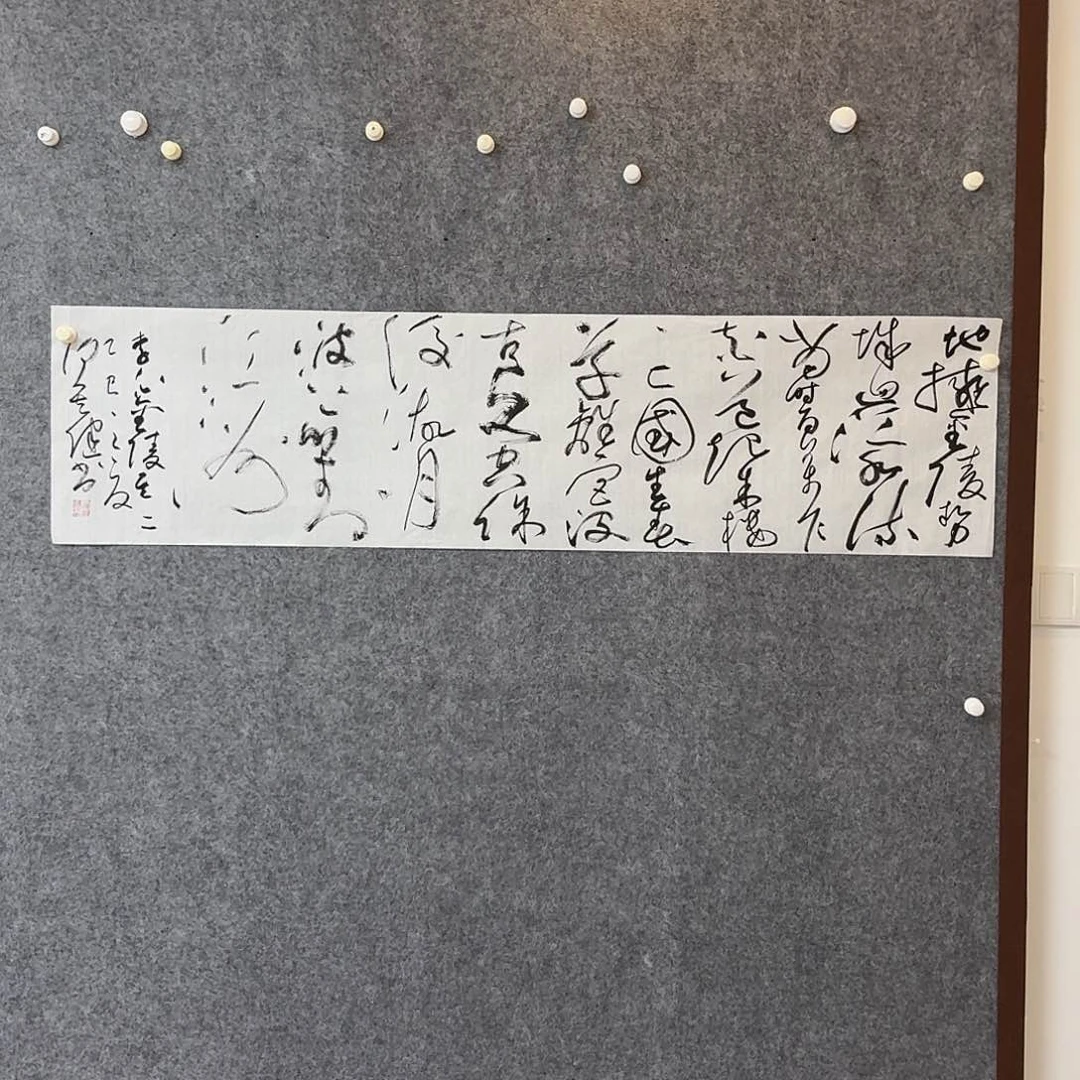 地擁金陵勢
城迴江水流
當時百万户
夾道起朱樓
亡國生春
草離宮没
古丘空餘
後湖月
波上對
江州
李白金陵其二
乙巳之夏
書